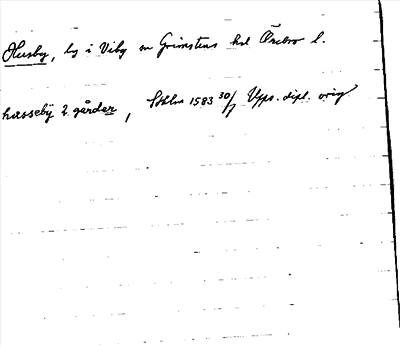 Husby, by i Viby sn Grimstens hd Örebro l.
husseby 2 gårdar, Sthlm 1583 30/7 Upps. dipl. orig